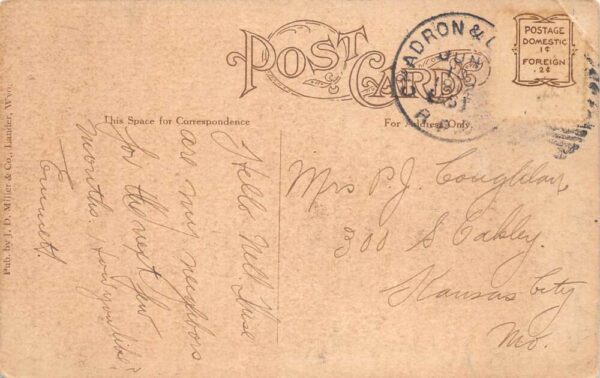 POST CARD
CHADRON & L
JUN
R.P.
POSTAGE
DOMESTIC
1¢
FOREIGN
2¢
This Space for Correspondence
For Address Only.
Pub. by J. D. Miller & Co., Lander, Wyo.
Hello Nell These
are my neighbors
for the next few
months.
Emmett
Mrs P. J. Coughlan
300 S Oakley.
Kansas City
Mo.